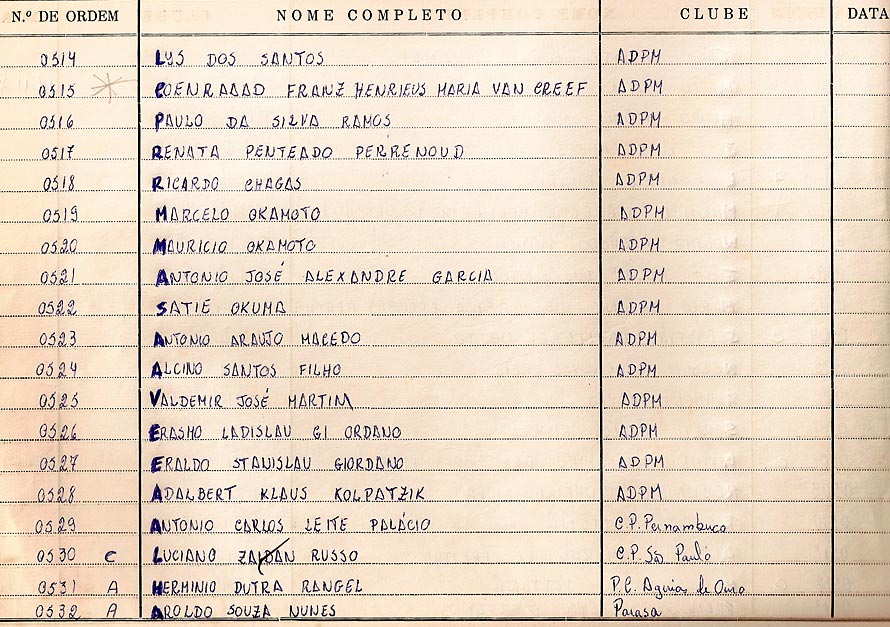 N.º DE ORDEM NOME COMPLETO CLUBE DATA
0514 LYS DOS SANTOS ADPM
0515 COENRAAAD FRANZ HENRIEUS MARIA VAN CREEF ADPM
0516 PAULO DA SILVA RAMOS ADPM
0517 RENATA PENTEADO PERRENOUD ADPM
0518 RICARDO CHAGAS ADPM
0519 MARCELO OKAMOTO ADPM
0520 MAURICIO OKAMOTO ADPM
0521 ANTONIO JOSÉ ALEXANDRE GARCIA ADPM
0522 SATIE OKUMA ADPM
0523 ANTONIO ARAUJO MACEDO ADPM
0524 ALCINO SANTOS FILHO ADPM
0525 VALDEMIR JOSÉ MARTIM ADPM
0526 ERASMO LADISLAU GI ORDANO ADPM
0527 ERALDO STANISLAU GIORDANO ADPM
0528 ADALBERT KLAUS KOLPATZIK ADPM
0529 ANTONIO CARLOS LEITE PALÁCIO C.P. Pernambuco
0530 C LUCIANO ZAIDAN RUSSO C.P. São Paulo
0531 A HERMINIO DUTRA RANGEL P.C. Aguias de Ouro
0532 A AROLDO SOUZA NUNES Parasa